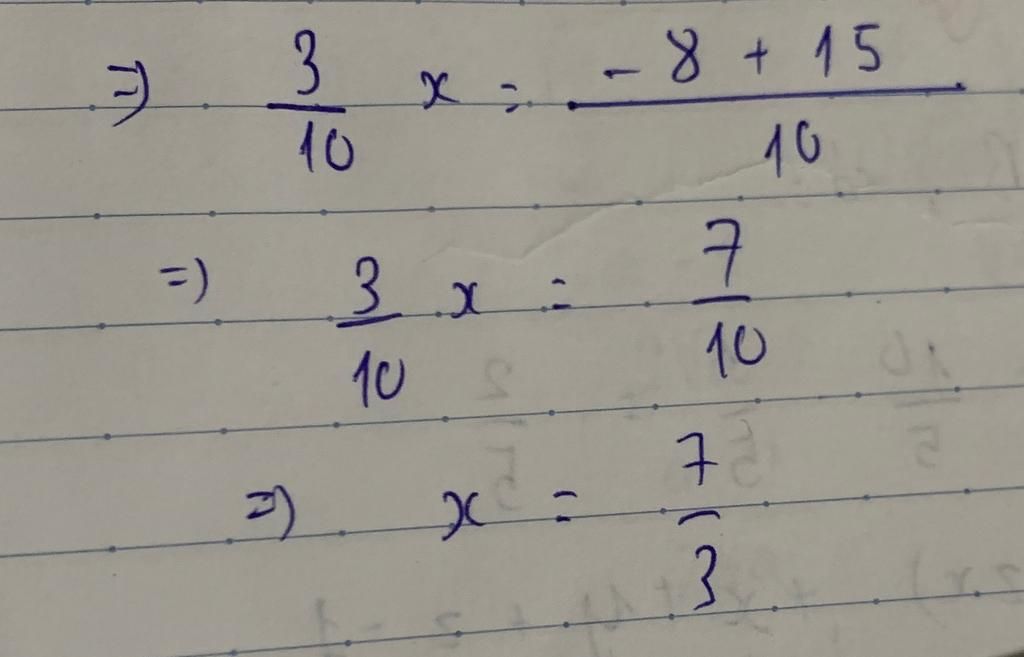 ⇒ 3/10 x = (-8 + 15)/10
⇒ 3/10 x = 7/10
⇒ x = 7/3